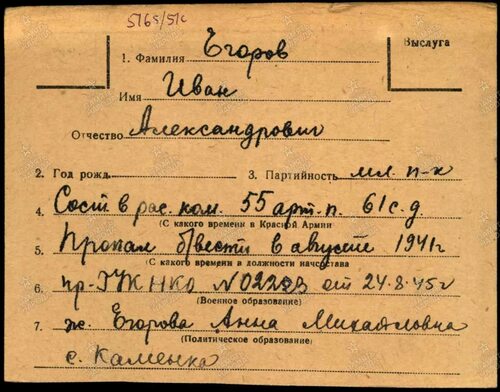 5165/51с
1. Фамилия Егоров
Выслуга
Имя Иван
Отчество Александрович
2. Год рожд. 3. Партийность мл. п-к
4. Сост в рас. ком. 55 арт. п. 61 с. д.
(С какого времени в Красной Армии)
5. Пропал б/вести в августе 1941 г
(С какого времени в должности начсостава)
6. пр-ГУК НКО №02223 от 24.8.45 г
(Военное образование)
7. ж. Егорова Анна Михайловна
(Политическое образование)
с. Каменка